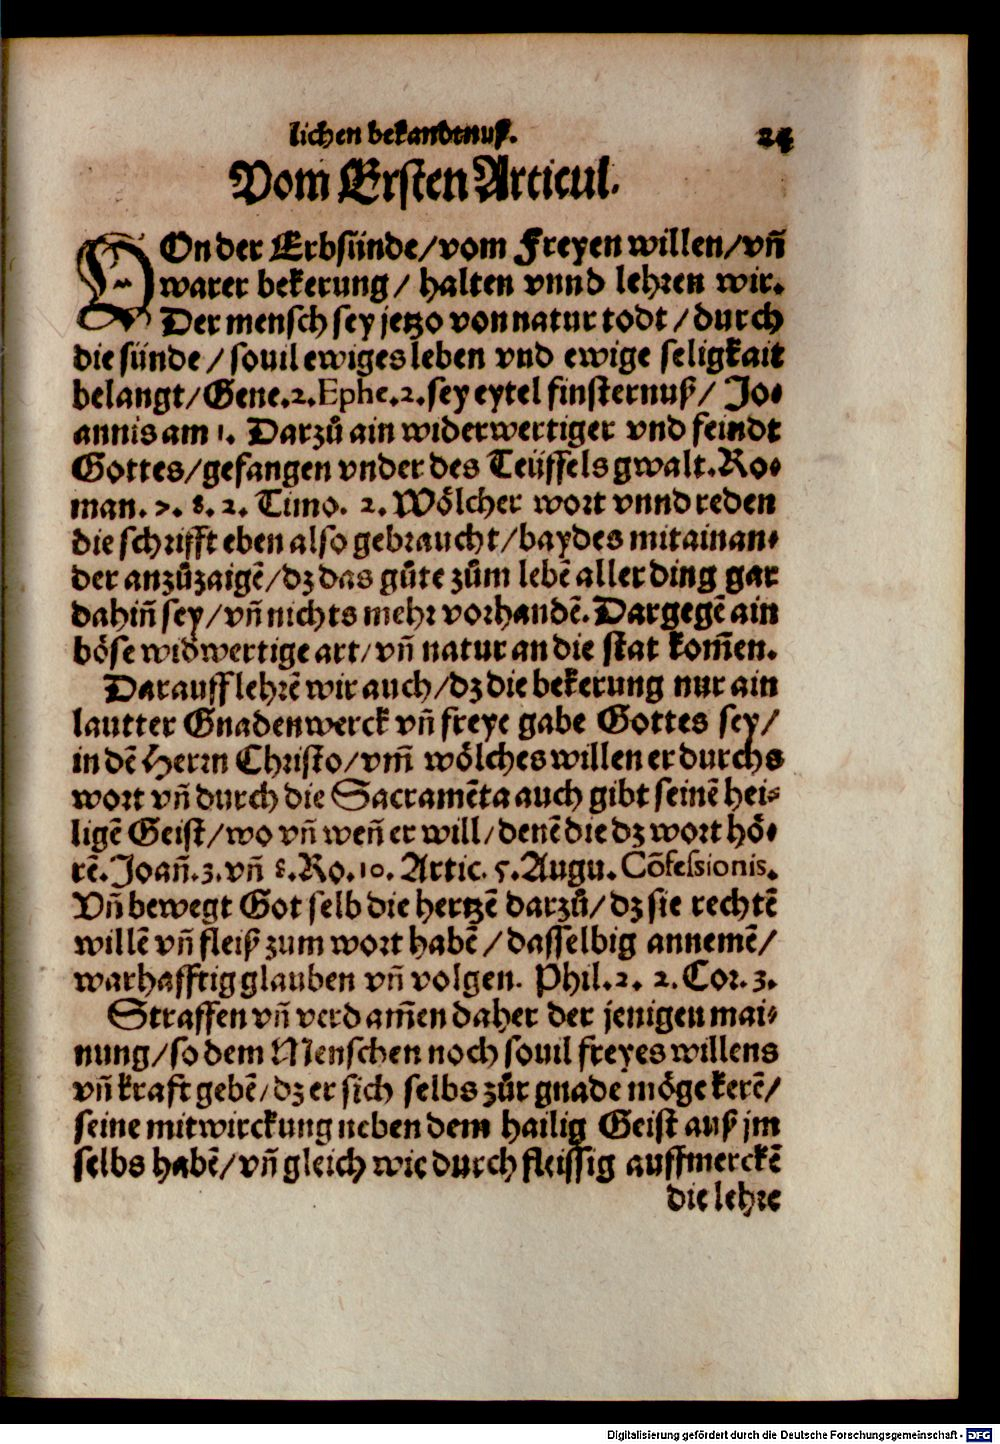 lichen bekandtnuß. 24
Vom Ersten Articul.
VOn der Erbsünde/vom Freyen willen/vñ
warer bekerung/ halten vnnd lehren wir.
Der mensch sey jetzo von natur todt/durch
die sünde/souil ewiges leben vnd ewige seligkait
belangt/Gene.2.Ephe.2.sey eytel finsternuß/ Jo-
annis am 1. Darzů ain widerwertiger vnd feindt
Gottes/gefangen vnder des Teüffels gwalt.Ro-
man. 7. 8. 2. Timo. 2. Wölcher wort vnnd reden
die schrifft eben also gebraucht/baydes mitainan-
der anzůzaigẽ/dz das gůte zům lebẽ aller ding gar
dahiñ sey/vñ nichts mehr vorhandẽ.Dargegẽ ain
böse widwertige art/vñ natur an die stat kom̃en.
Darauff lehrẽ wir auch/dz die bekerung nur ain
lautter Gnadenwerck vñ freye gabe Gottes sey/
in dẽ Herrn Christo/vm̃ wölches willen er durchs
wort vñ durch die Sacramẽta auch gibt seinẽ hei-
ligẽ Geist/wo vñ weñ er will/denẽ die dz wort hö-
rẽ.Joañ.3.vñ 8.Ro.10.Artic.5.Augu.Cõfessionis.
Vñ bewegt Got selb die hertzẽ darzů/dz sie rechtẽ
willẽ vñ fleiß zum wort habẽ/dasselbig annemẽ/
warhafftig glauben vñ volgen. Phil.2. 2.Cor.3.
Straffen vñ verdam̃en daher der jenigen mai-
nung/so dem Menschen noch souil freyes willens
vñ kraft gebẽ/dz er sich selbs zůr gnade möge kerẽ/
seine mitwirckung neben dem hailig Geist auß jm
selbs habẽ/vñ gleich wie durch fleissig auffmerckẽ
die lehre
Digitalisierung gefördert durch die Deutsche Forschungsgemeinschaft - DFG